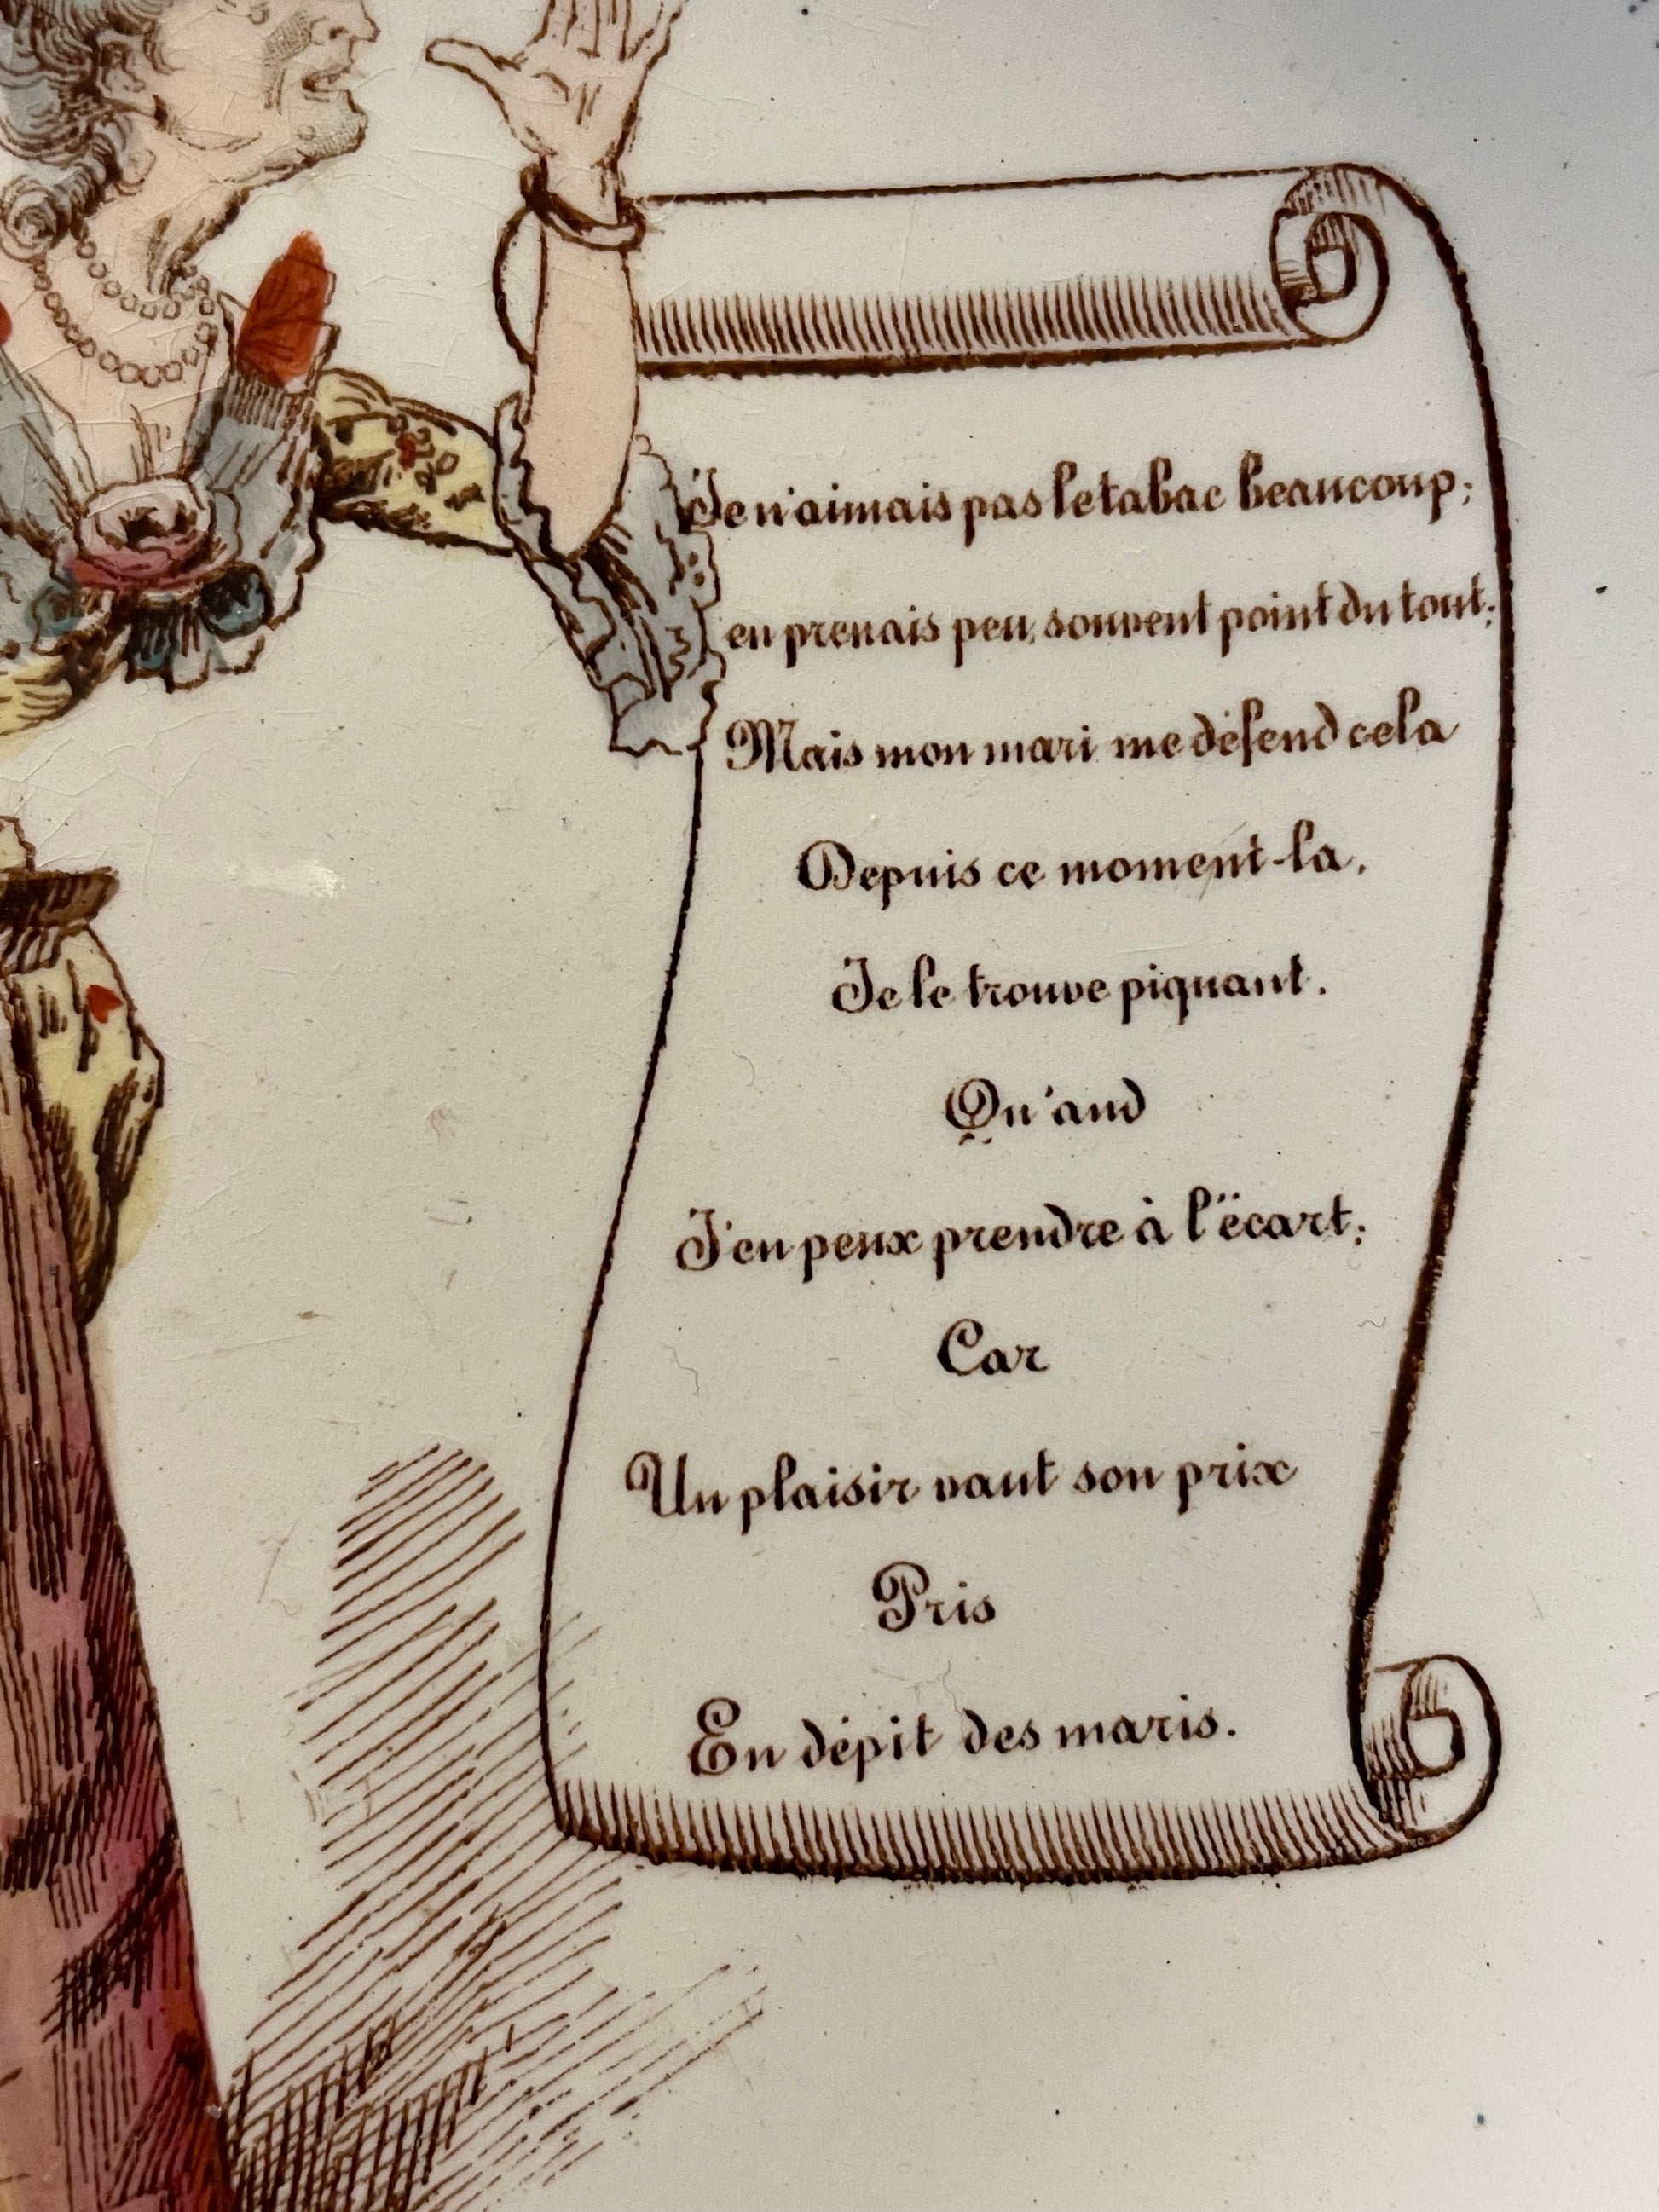 Je n'aimais pas le tabac beaucoup;
en prenais peu, souvent point du tout;
Mais mon mari me défend cela
Depuis ce moment-la,
Je le trouve piquant.
Qu'and
J'en peux prendre à l'ëcart;
Car
Un plaisir vaut son prix
Pris
En dépit des maris.